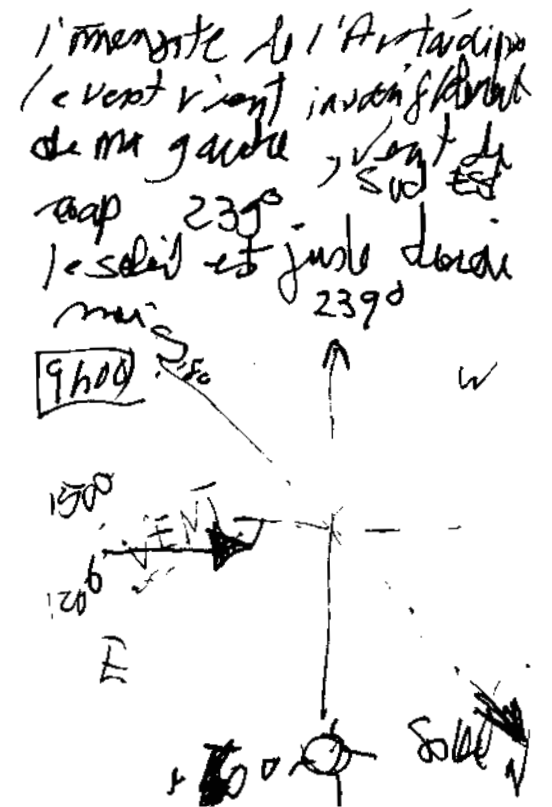 l'immensité de l'Antarctique
le vent vient invariablement
de ma gauche, vent de
sud Est
cap 239°
le soleil est juste derrière
moi
239°
S
180
9h00
W
150°
VENT
120°
E
Soleil
N